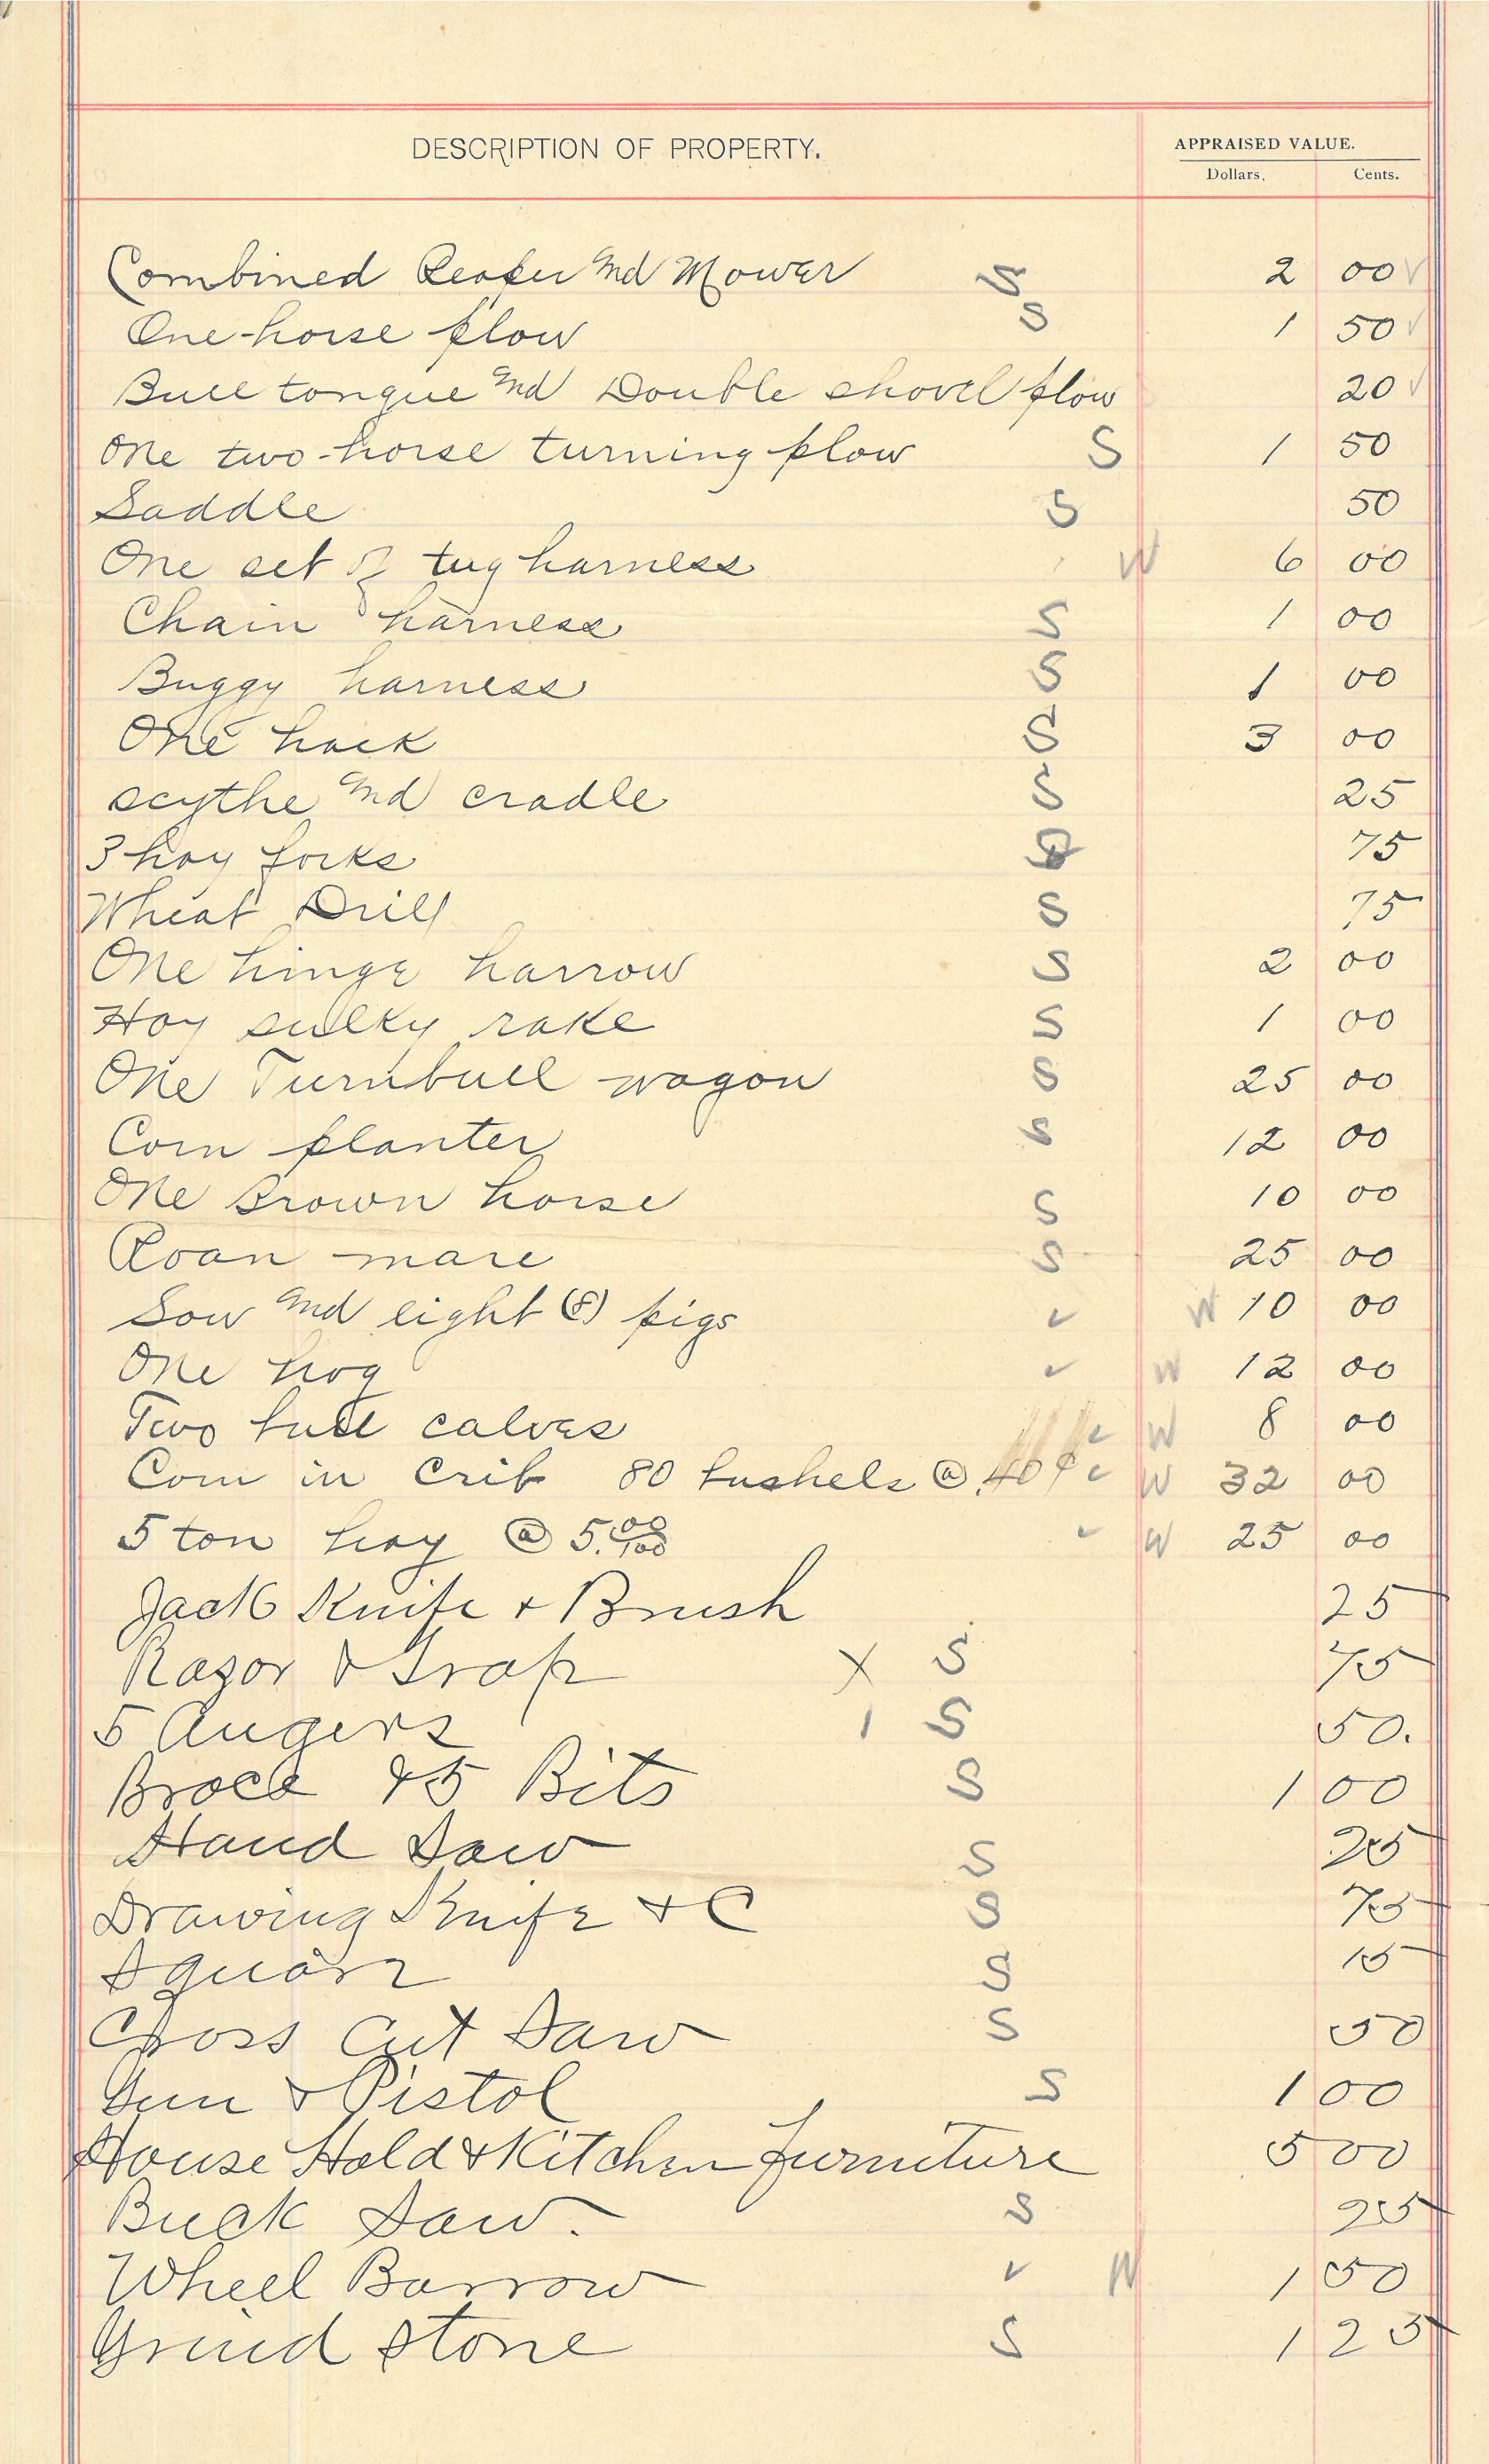 DESCRIPTION OF PROPERTY. APPRAISED VALUE.
Dollars. Cents.
Combined Reaper and Mower S 2 00 ✓
One-horse plow S 1 50 ✓
Bull tongue and Double shovel plow 20 ✓
One two-horse turning plow S 1 50
Saddle S 50
One set of tug harness W 6 00
Chain harness S 1 00
Buggy harness S 1 00
One hack S 3 00
scythe and cradle S 25
3 hay forks 75
Wheat Drill S 75
One hinge harrow S 2 00
Hay sulky rake S 1 00
One Turnbull wagon S 25 00
Corn planter S 12 00
One Brown horse S 10 00
Roan mare S 25 00
Sow and eight (8) pigs ✓ W 10 00
One hog ✓ W 12 00
Two bull calves ✓ W 8 00
Corn in Crib 80 bushels @ .40 ¢ ✓ W 32 00
5 ton hay @ 5.00/100 ✓ W 25 00
Jack Knife + Brush 25
Razor & Strap X S 75
5 Augers 1 S 50.
Brace & 5 Bits S 1 00
Hand Saw S 25
Drawing Knife + C S 75
Square S 15
Cross Cut Saw S 50
Gun + Pistol S 1 00
House Hold & Kitchen furniture 5 00
Buck Saw. S 25
Wheel Barrow ✓ W 1 50
Grind stone S 1 25